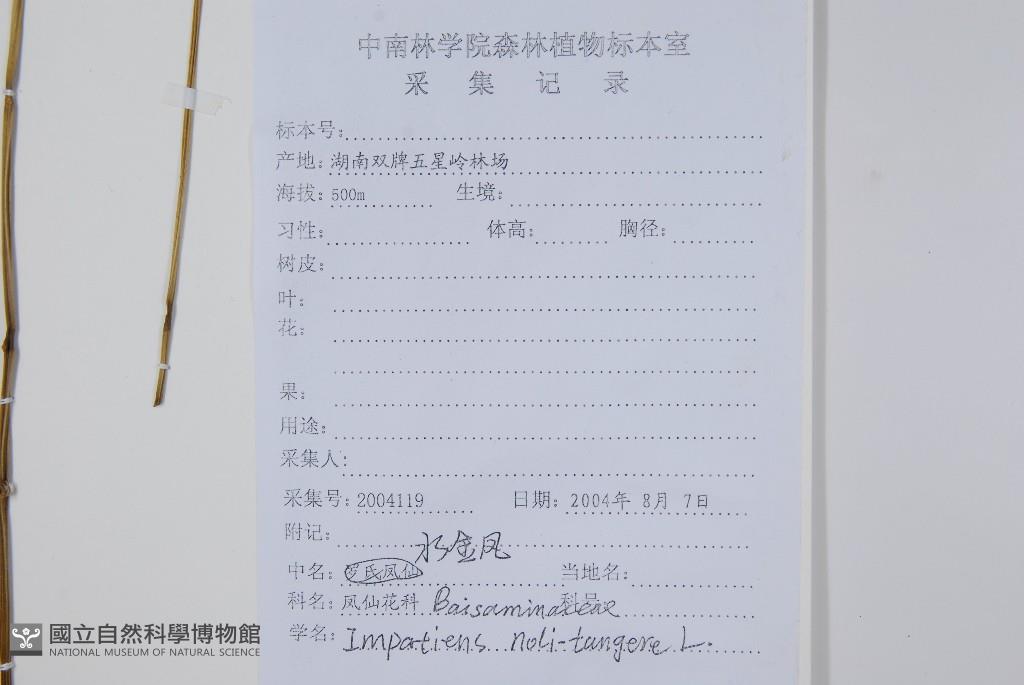 中南林学院森林植物标本室
采集记录
标本号:
产地: 湖南双牌五星岭林场
海拔: 500m 生境:
习性: 体高: 胸径:
树皮:
叶:
花:
果:
用途:
采集人:
采集号: 2004119 日期: 2004年 8月 7日
附记:
水金凤
中名: 罗氏凤仙 当地名:
科名: 凤仙花科 Baisaminaceae 科号
学名: Impatiens noli-tangere L.
國立自然科學博物館
NATIONAL MUSEUM OF NATURAL SCIENCE